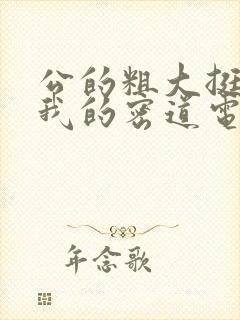 公的粗大挺
我的密道电
年念歌